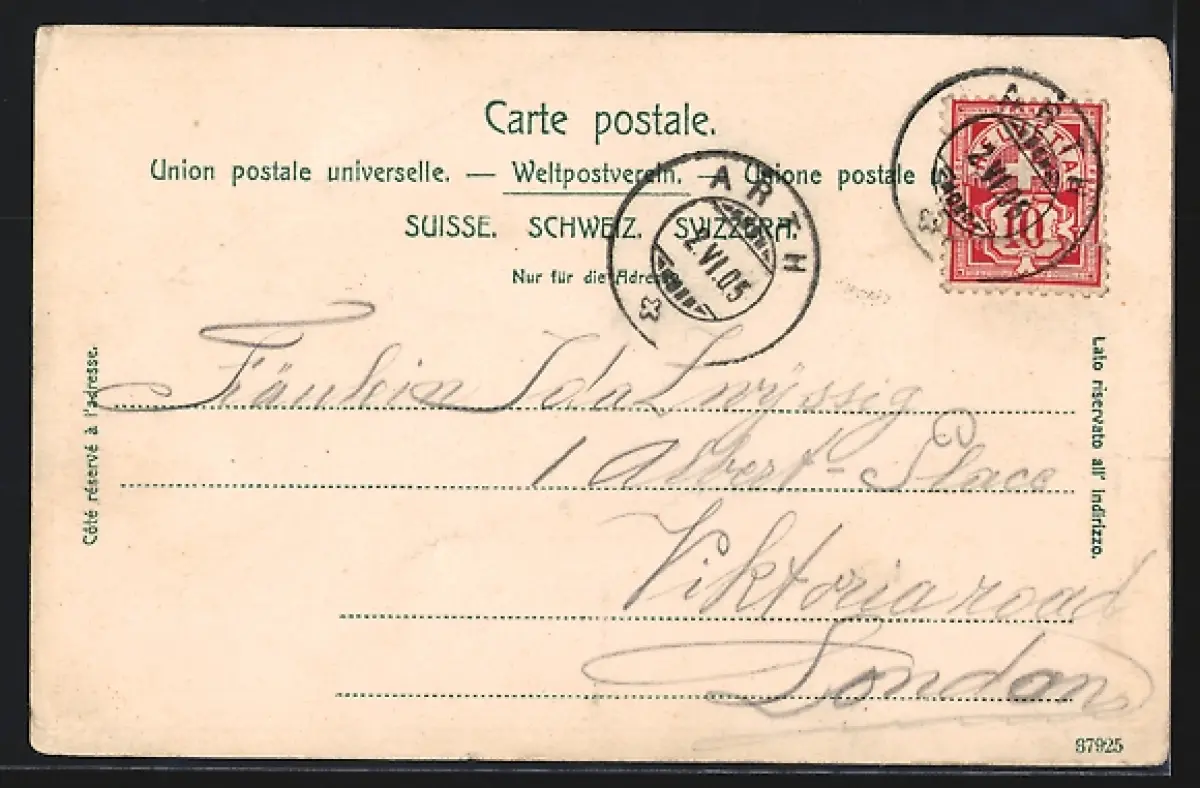 Carte postale.
Union postale universelle. — Weltpostverein. — Unione postale
SUISSE. SCHWEIZ. SVIZZERA.
Nur für die Adresse
ARTH
2.VI.05
ARTH
2.VI.05
HELVETIA
10
Côté réservé à l'adresse.
Lato riservato all' indirizzo.
Fräulein Ida Zwyssig
1 Albert-Place
Viktoria road
London
87925